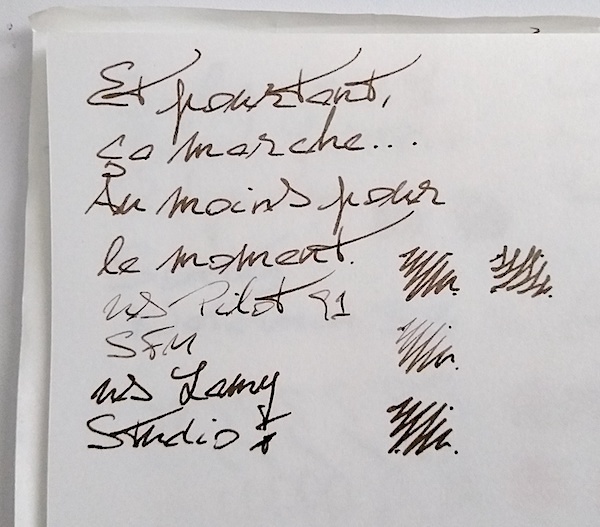 Et pourtant,
ça marche...
Au moins pour
le moment.
vs Pilot 91
SFM
vs Lamy
Studio F